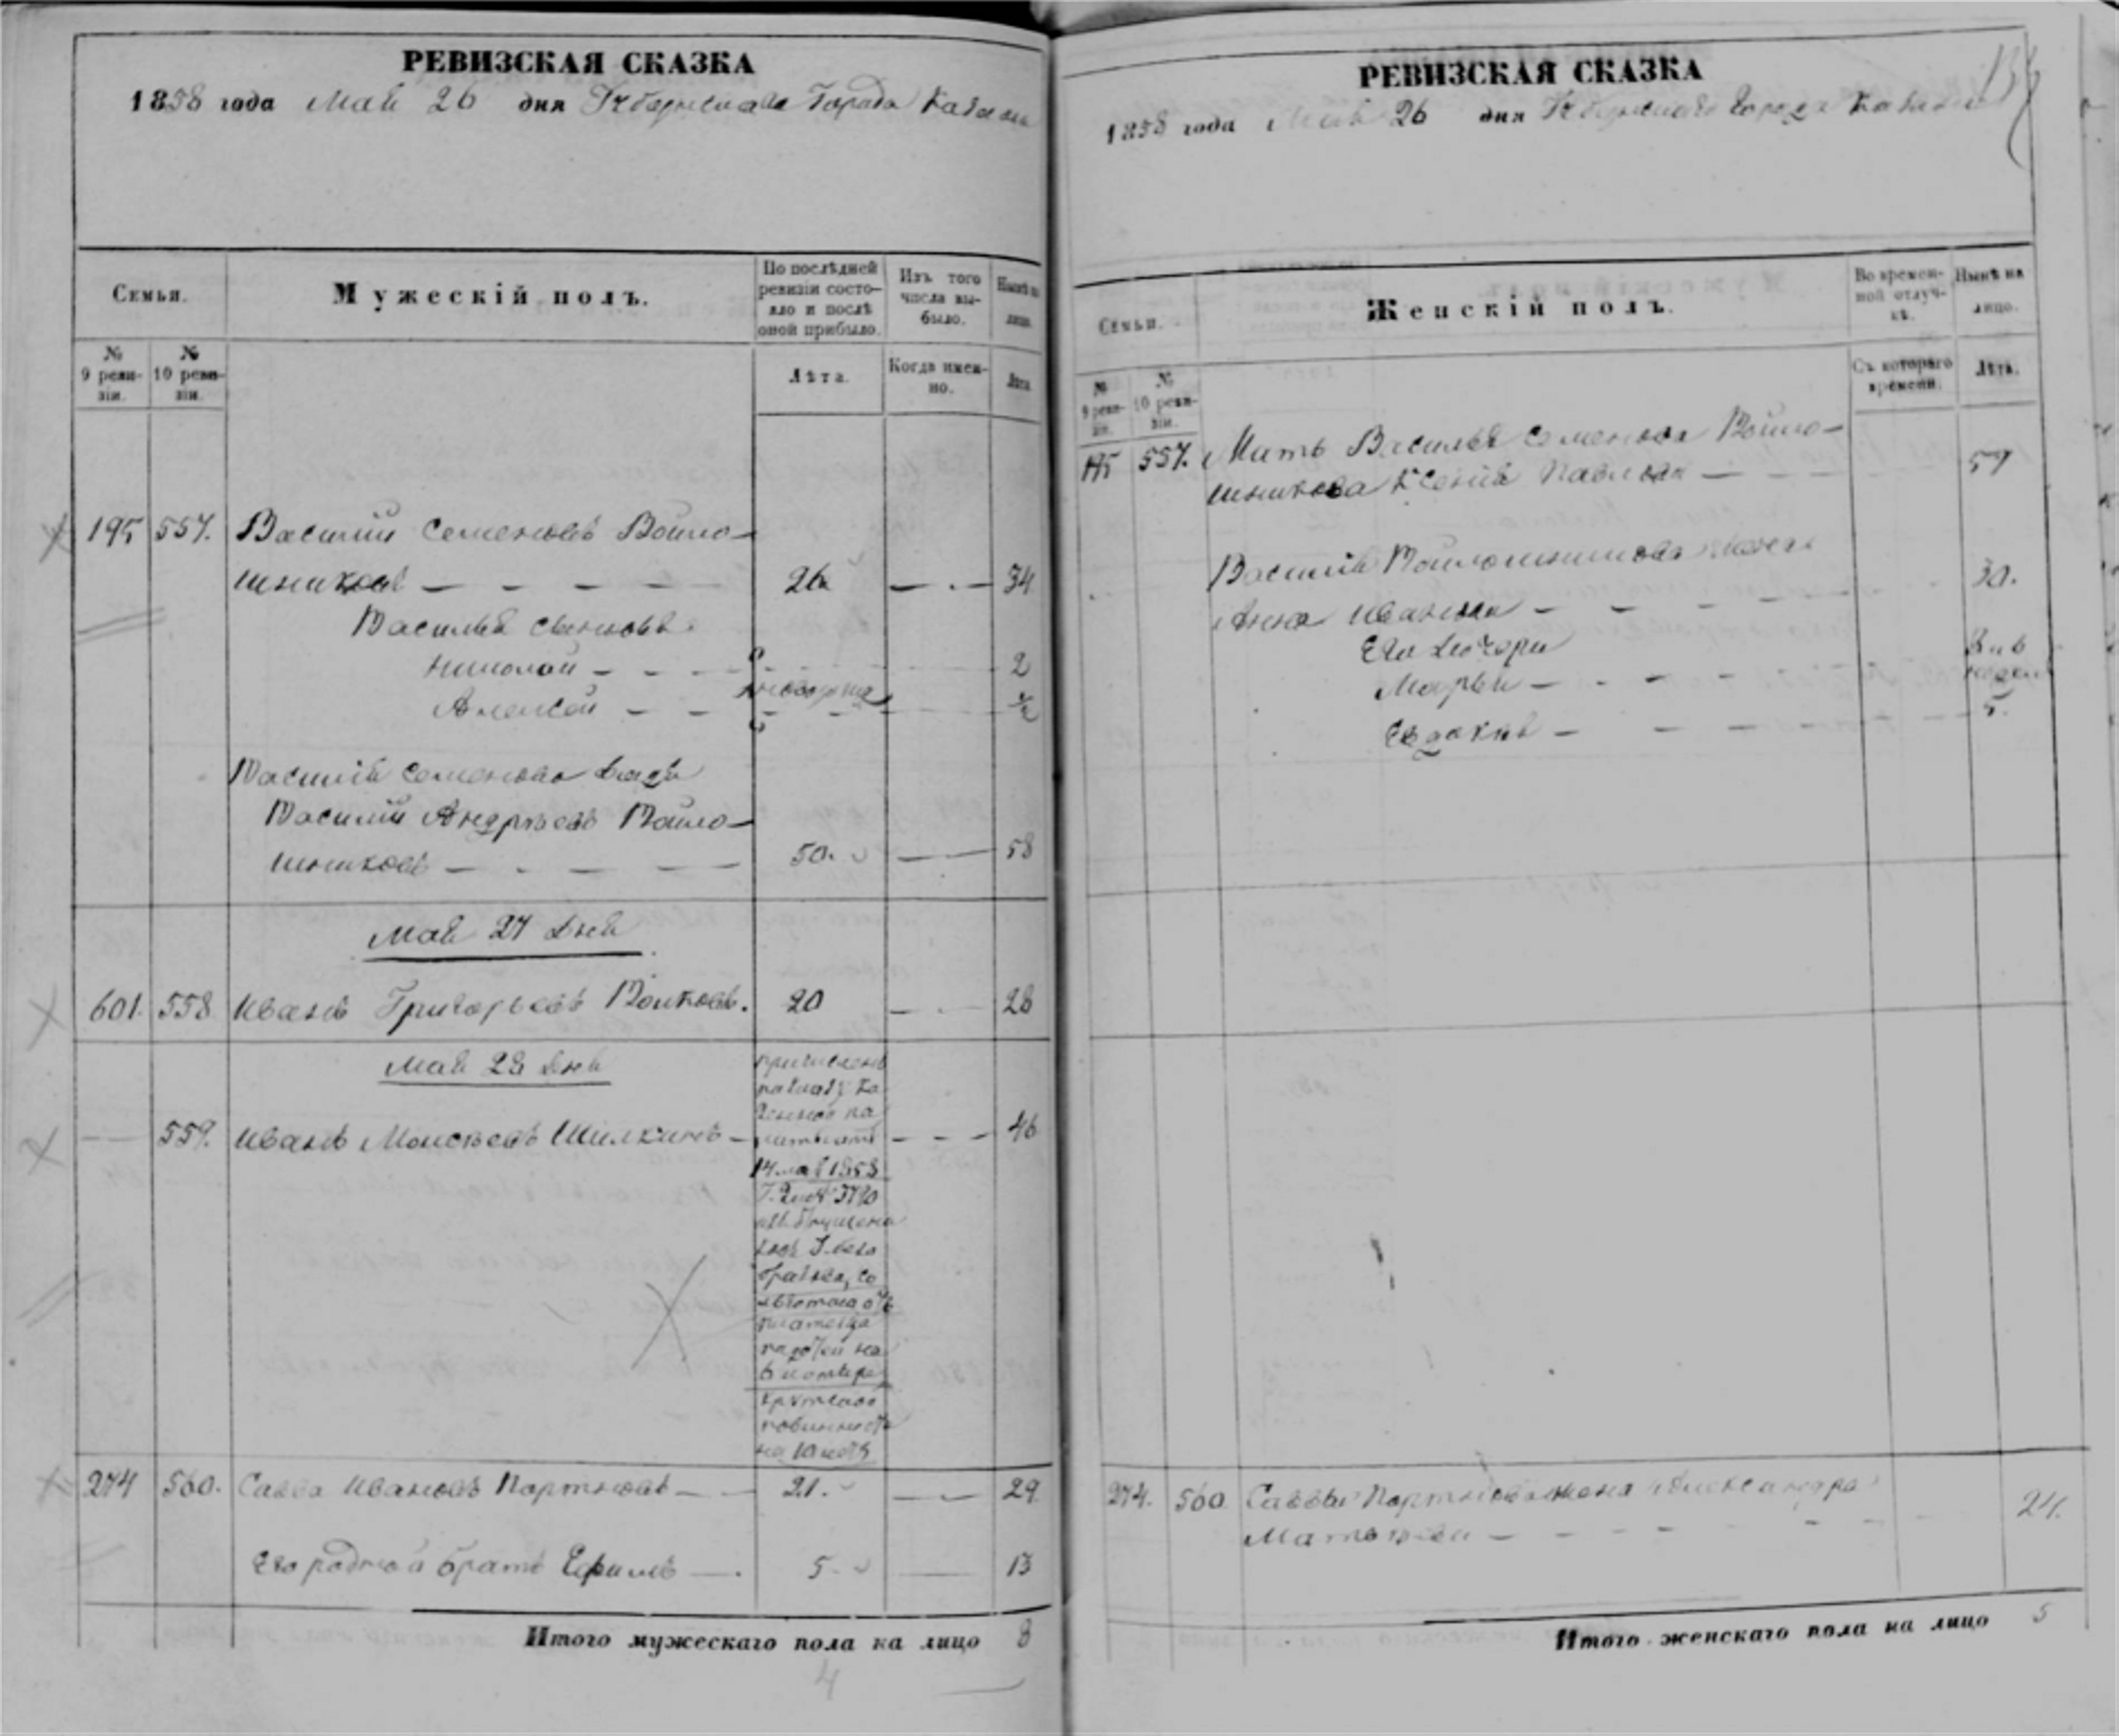 РЕВИЗСКАЯ СКАЗКА
1858 года Мая 26 дня Губернскаго Города Казани
Семьи.
Мужескій полъ.
По послѣдней ревизіи состояло и послѣ оной прибыло.
Изъ того числа выбыло.
Нынѣ на лицо.
№ 9 ревизіи.
№ 10 ревизіи.
Лѣта.
Когда именно.
Лѣта.
195 557. Василій Семеновъ Войло-
шниковъ — 26 — 34
Василья сыновья
Николай — 2
новорожд
Алексей — ½
Василія Семенова дядя
Василій Андрѣевъ Войло-
шниковъ — 50. — 58
Мая 27 дня
601. 558 Иванъ Григорьевъ Волковъ. 20 — 28
Мая 28 дня
559. Иванъ Моисѣевъ Шилкинъ — 46
причисленъ
14 мая 1858
на 10 лѣтъ
274 560. Савва Ивановъ Портновъ — 21. — 29
Его родной братъ Ефимъ — 5 — 13
Итого мужескаго пола на лицо 8
4
РЕВИЗСКАЯ СКАЗКА
1858 года Мая 26 дня Губернскаго Города Казани
Семьи.
Женскій полъ.
Во временной отлучкѣ.
Нынѣ на лицо.
№ 9 ревизіи.
№ 10 ревизіи.
Съ котораго времени.
Лѣта.
195 557. Мать Василья Семенова Войло-
шникова Ксенія Павлова — 57
Василія Войлошникова жена
Анна Иванова — 30.
Его дочери
Марья —
недель
Евдокія — 5.
274. 560 Саввы Портнова жена Александра
Матвѣева — 24.
Итого женскаго пола на лицо 5